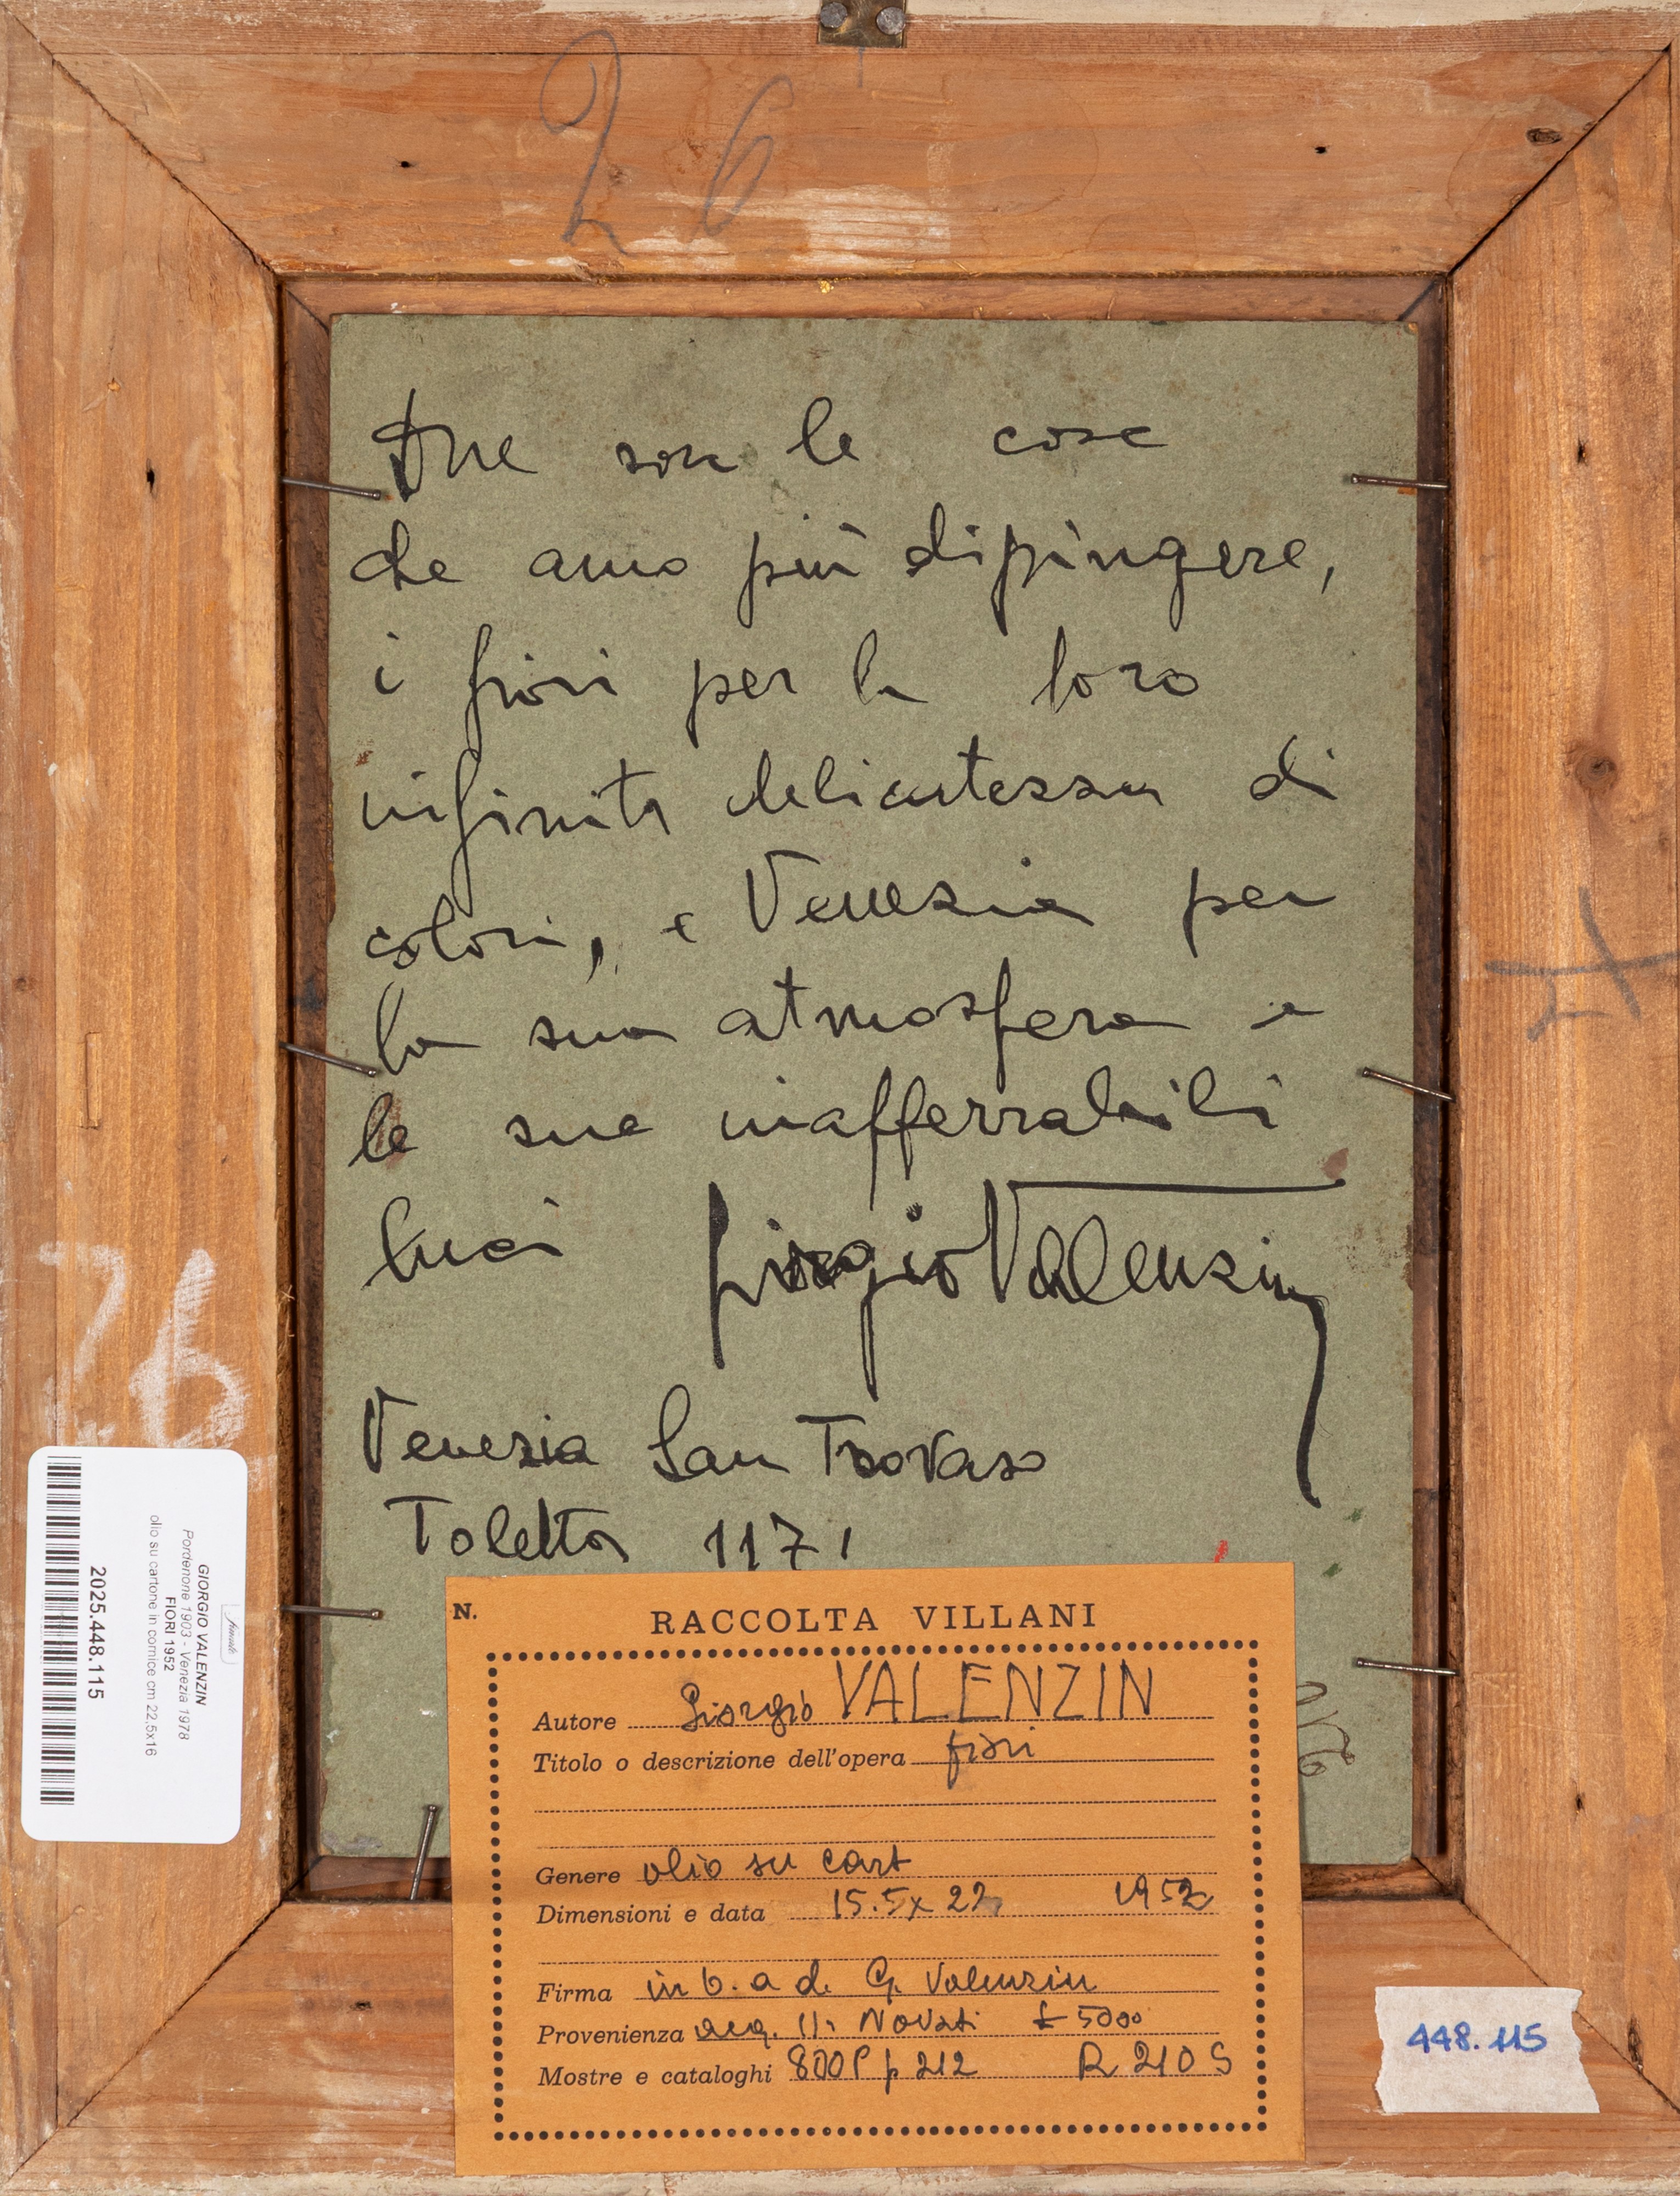 26
Due son le cose
che amo più dipingere,
i fiori per la loro
infinita delicatezza di
colori, e Venezia per
la sua atmosfera e
le sue inafferrabili
luci Giorgio Valenzin
Venezia San Trovaso
Toletta 1171
26
GIORGIO VALENZIN
Pordenone 1903 - Venezia 1978
FIORI 1952
olio su cartone in cornice cm 22,5x16
2025.448.115
N.
RACCOLTA VILLANI
Autore Giorgio VALENZIN
Titolo o descrizione dell'opera fiori
Genere olio su cart
Dimensioni e data 15.5x22 1952
Firma in b. a d. G. Valenzin
Provenienza acq. Novati £ 5000
Mostre e cataloghi 800P p 212 R 210 S
448.115